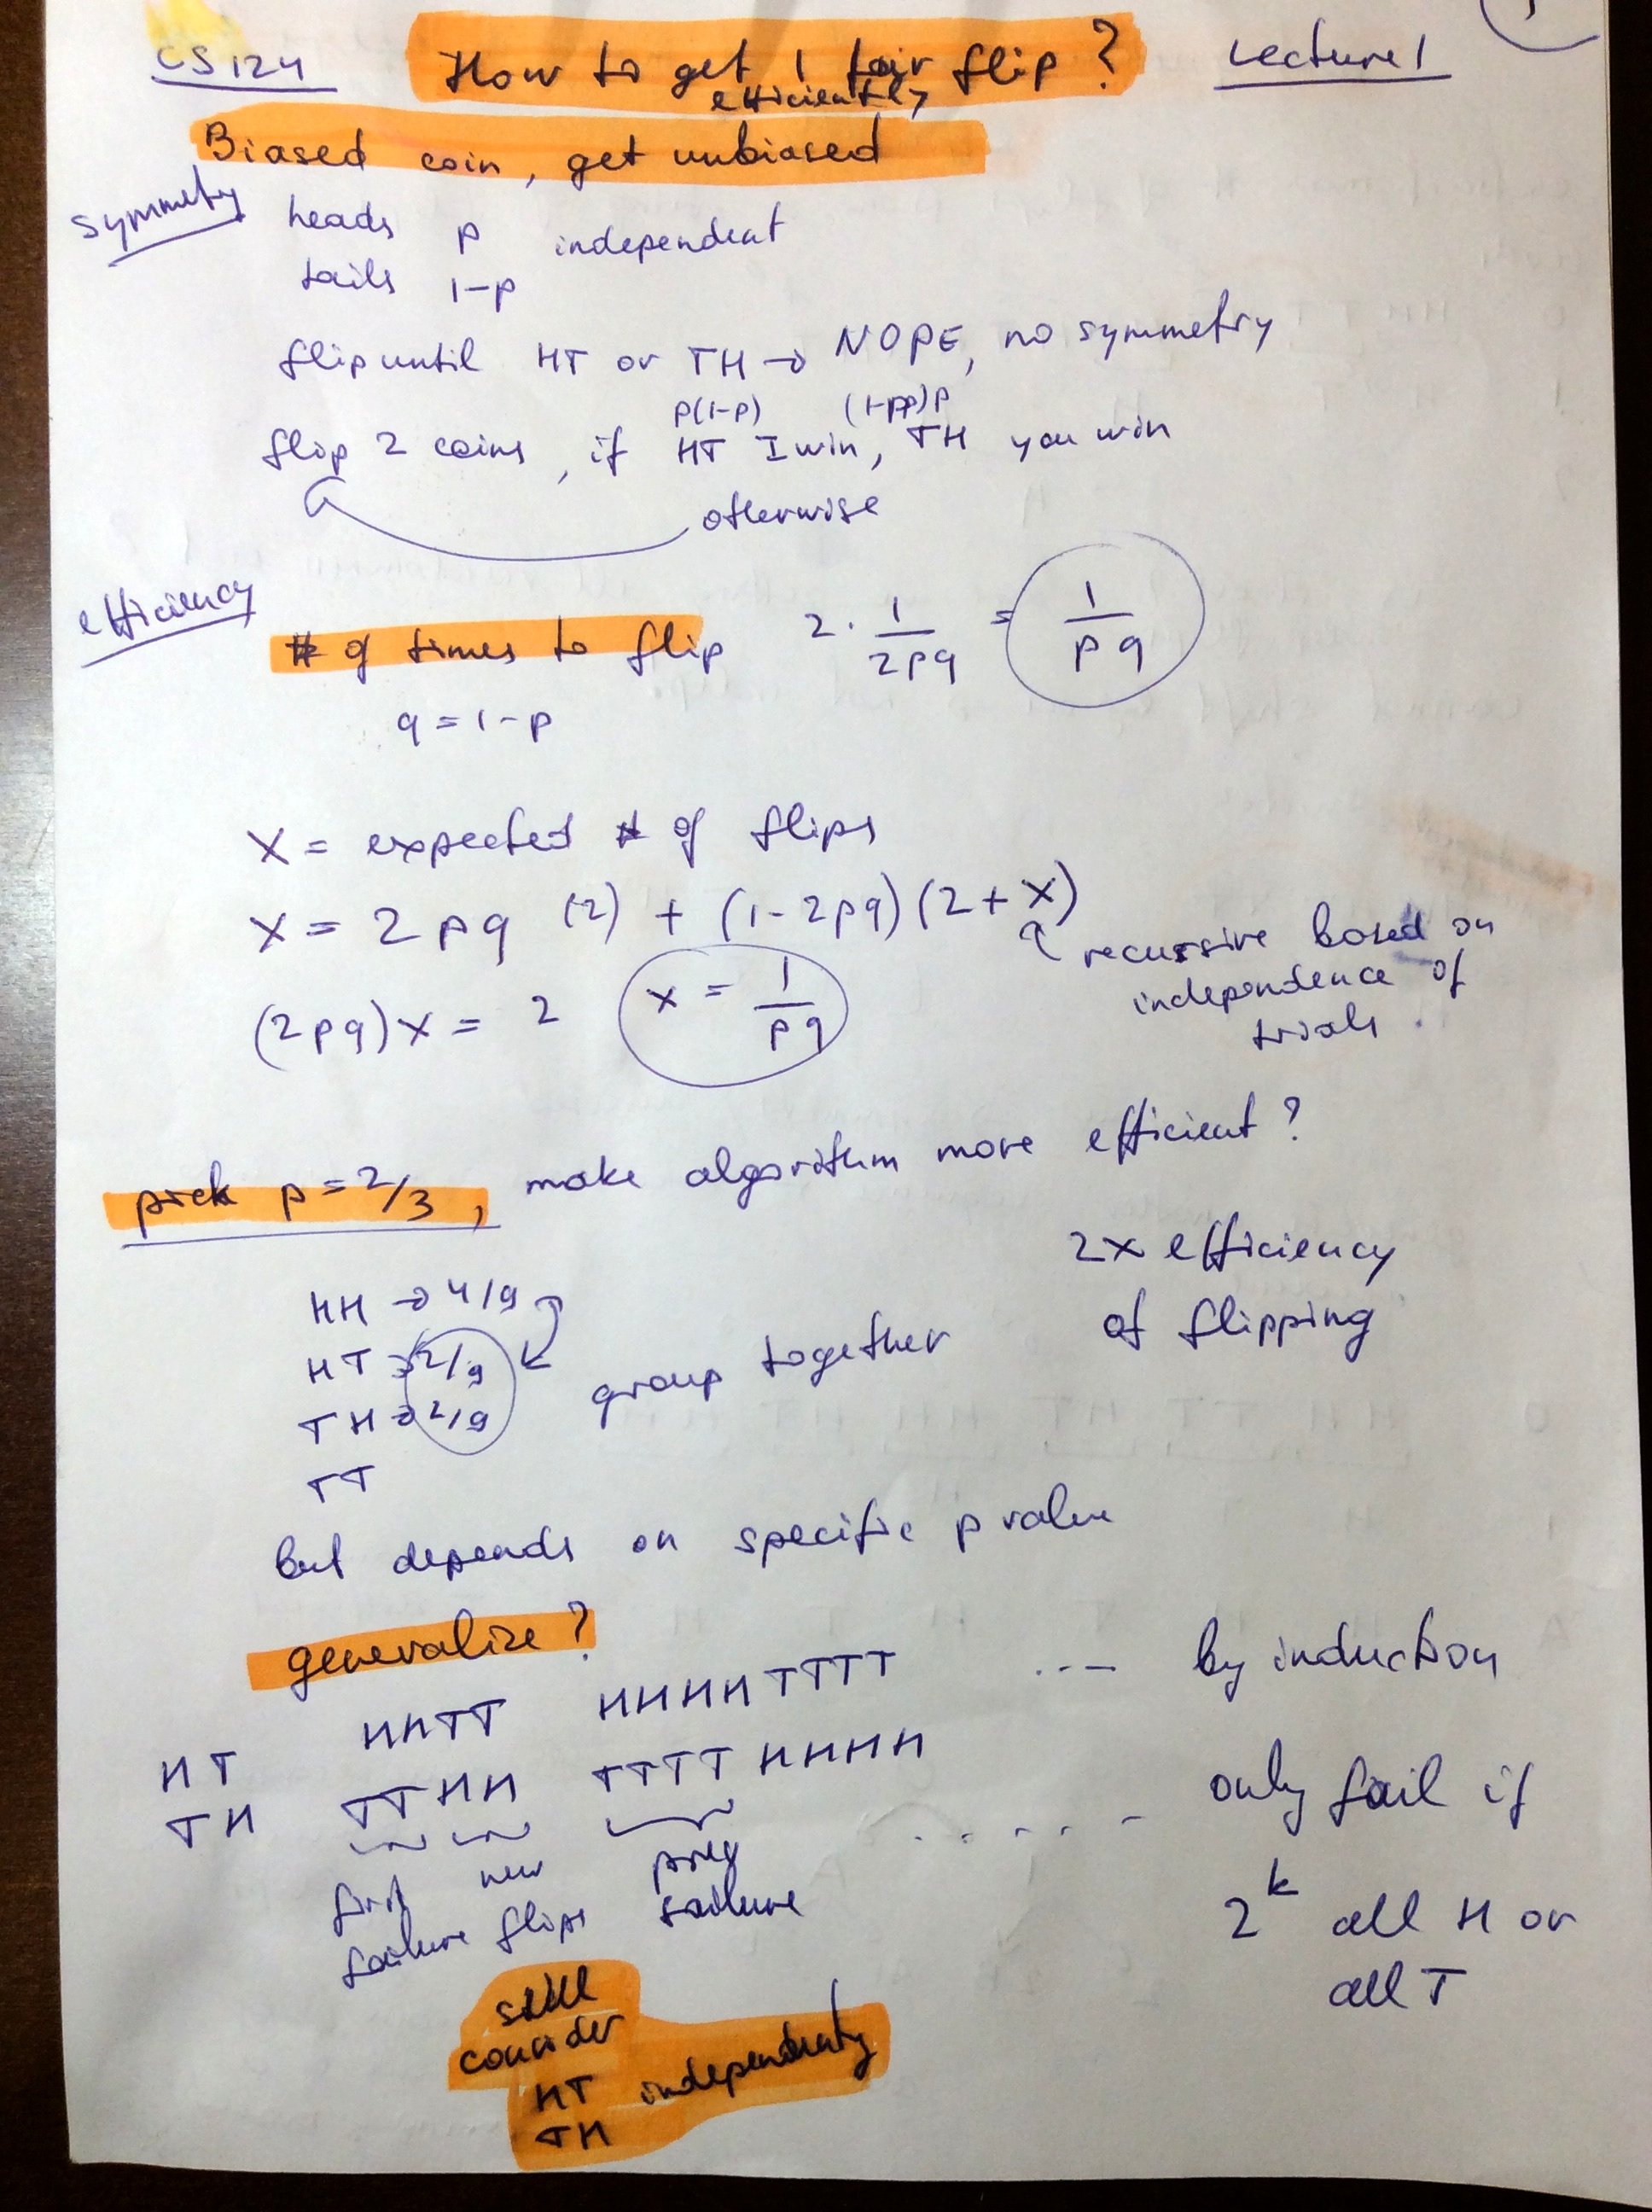 CS124 How to get 1 fair flip? Lecture 1
efficiently
Biased coin, get unbiased
symmetry heads p independent
tails 1-p
flip until HT or TH → NOPE, no symmetry
p(1-p) (1-p)p
flip 2 coins, if HT I win, TH you win
otherwise
efficiency
# of times to flip 2 · 1/2pq = 1/pq
q = 1-p
X = expected # of flips
X = 2pq (2) + (1-2pq)(2+X)
recursive based on
independence of
trials.
(2pq)X = 2 x = 1/pq
pick p = 2/3, make algorithm more efficient?
2x efficiency
of flipping
HH → 4/9
HT → 2/9
group together
TH → 2/9
TT
but depends on specific p value
generalize?
HT HHTT HHHHTTTT --- by induction
TH TTHH TTTTHHHH ...... only fail if
2^k all H or
all T
first new prev
failure flips failure
still
consider
HT independently
TH